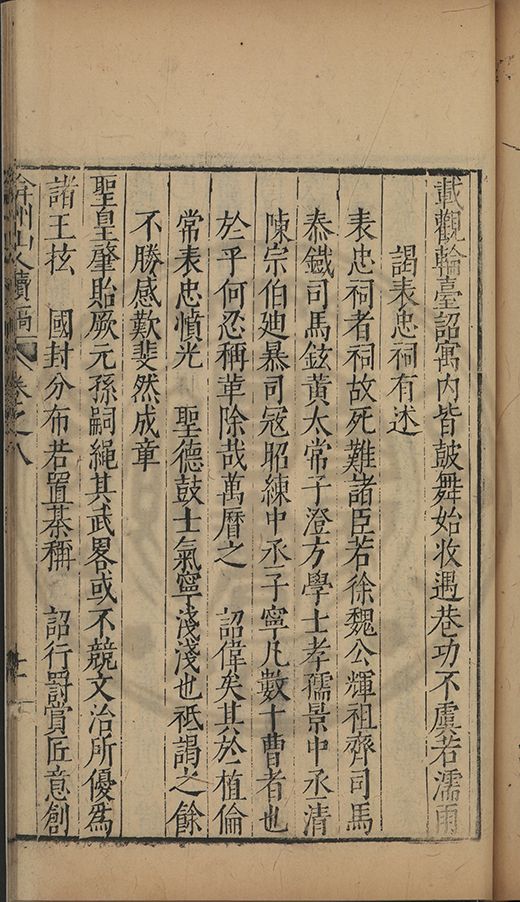 載觀輪臺詔寓內皆鼓舞始收遇巷功不虞若濡雨
謁表忠祠有述
表忠祠者祠故死難諸臣若徐魏公輝祖齊司馬
泰鐵司馬鉉黃太常子澄方學士孝孺景中丞清
陳宗伯廸暴司冦昭練中丞子寧凡數十曹者也
於乎何忍稱革除哉萬曆之　詔偉矣其於植倫
常表忠憤光　聖德鼓士氣寧淺淺也祗謁之餘
不勝感歎斐然成章
聖皇肇貽厥元孫嗣繩其武畧或不競文治所優為
諸王　國封分布若置棊稱　詔行爵賞匠意創
弇州山人續稿　卷之八